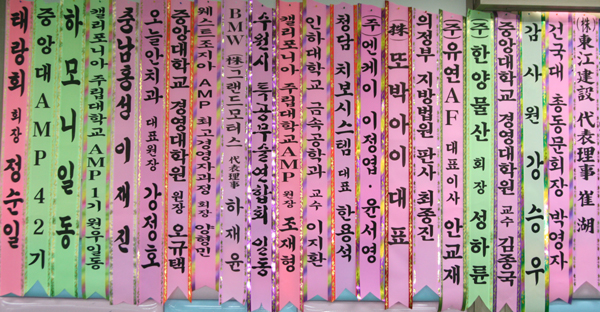 태랑회 회장 정순일
중앙대 AMP 42기
하모니 일동
캘리포니아 주립대학교 AMP 1기 원우일동
충남홍성 이재진
오늘안치과 대표원장 강정호
중앙대학교 경영대학원 원장 오규택
웨스트조지아 AMP 최고경영자과정 회장 양형민
BMW (株)그랜드모터스 代表理事 하재윤
수원시 특공무술연합회 일동
캘리포니아 주립대학교AMP 원장 조재형
인하대학교 금속공학과 교수 이지환
청담 치보시스템 대표 한용석
(주)엔케이 이정엽·윤서영
(株)또박아이 대표
의정부 지방법원 판사 최종진
(주)유연AF 대표이사 안교재
(주)한양물산 회장 성하륜
중앙대학교 경영대학원 교수 김종국
감사원 강승우
건국대 총동문회장 박영자
(株)東江建設 代表理事 崔湖